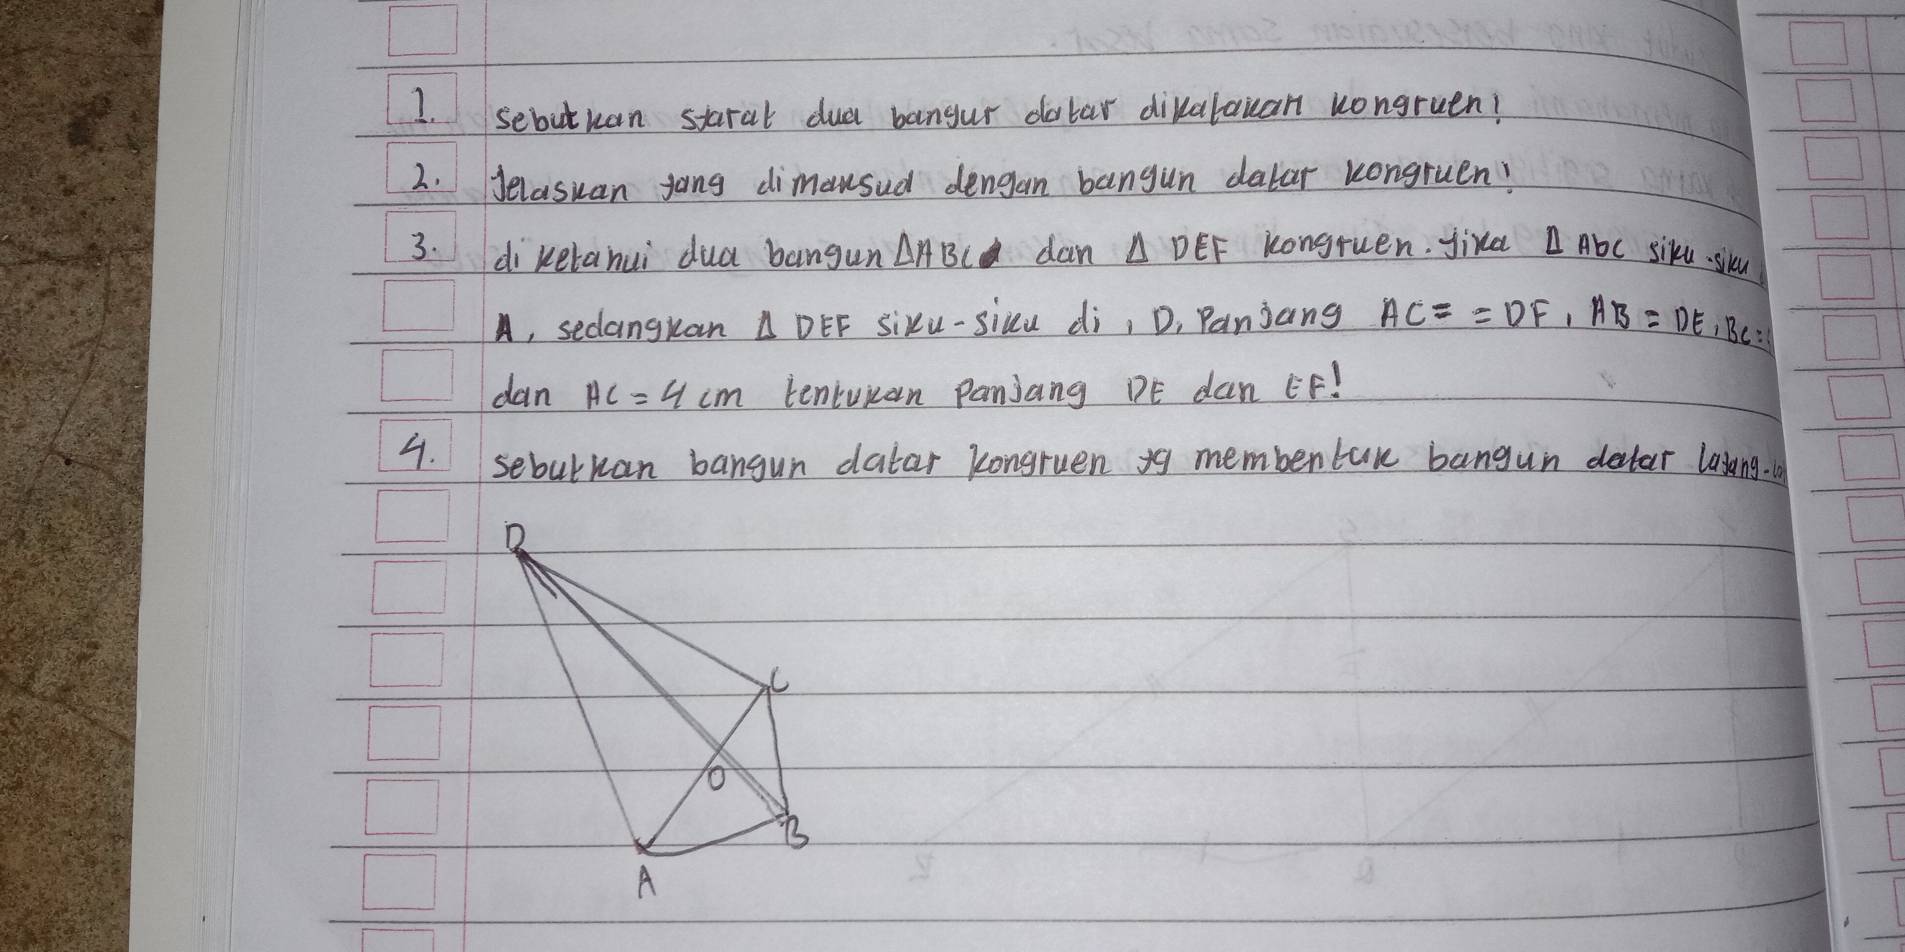 1. sebutkan syarat dua bangun datar dikatakan kongruen!
2. Jelaskan yang dimaksud dengan bangun datar kongruen!
3. diketahui dua bangun ΔABC dan Δ DEF kongruen. Jika Δ Abc siku-siku
A, sedangkan Δ DEF siku-siku di, D, Panjang AC = = DF, AB = DE, BC =
dan AC = 4 cm tentukan Panjang DE dan EF!
4. sebutkan bangun datar kongruen yg membentuk bangun datar layang-
D
C
O
B
A